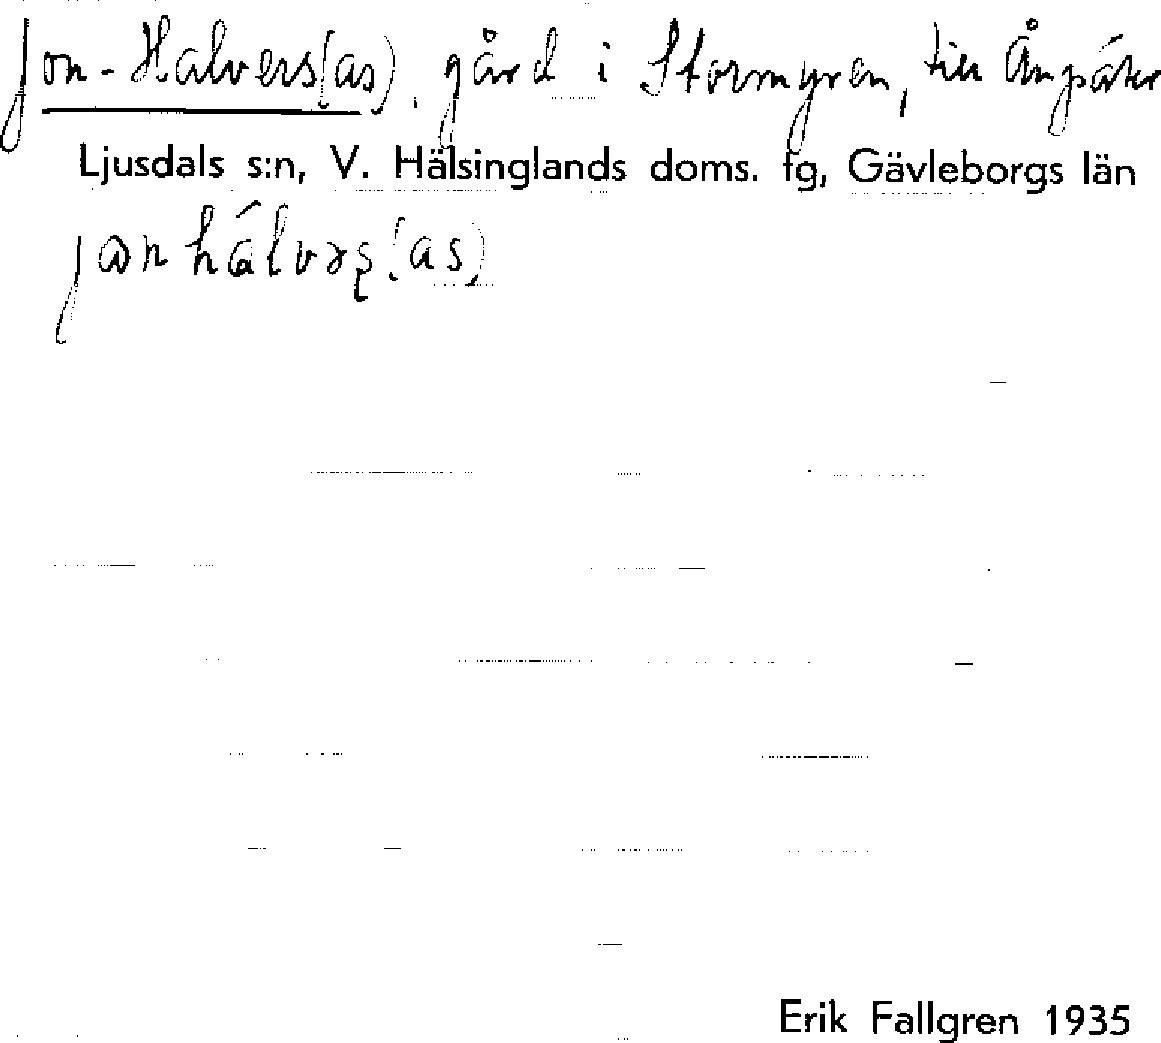 Jon-Halvers(as), gård i Stormyren, till Ångsäter
Ljusdals s:n, V. Hälsinglands doms. fg, Gävleborgs län
jɷn hálvəʂ(as)
Erik Fallgren 1935